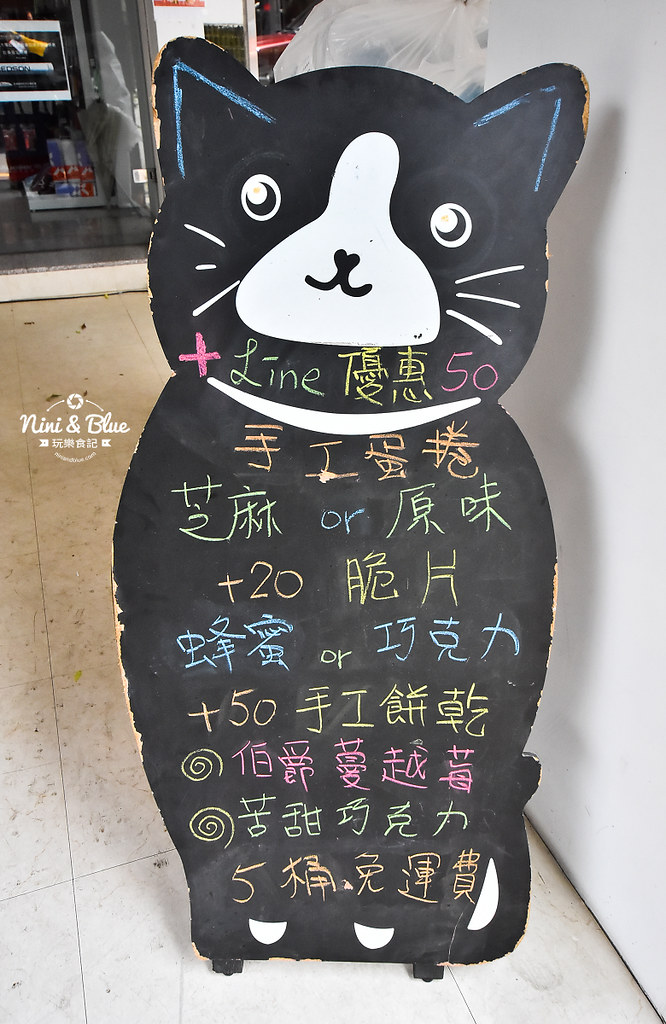 + Line 優惠 50
手工蛋捲
芝麻 or 原味
+20 脆片
蜂蜜 or 巧克力
+50 手工餅乾
伯爵蔓越莓
苦甜巧克力
5桶免運費
Nini & Blue
玩樂食記
niniandblue.com